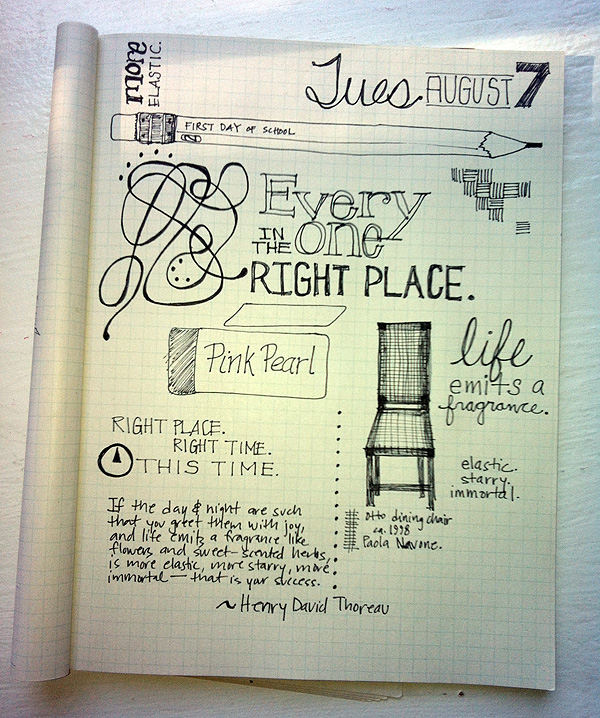 more
ELASTIC.
Tues. AUGUST 7
FIRST DAY OF SCHOOL
Every
one
IN
THE
RIGHT PLACE.
Pink Pearl
life
emits a
fragrance.
RIGHT PLACE.
RIGHT TIME.
THIS TIME.
elastic.
starry.
immortal.
otto dining chair
ca. 1998
Paola Navone.
If the day & night are such
that you greet them with joy,
and life emits a fragrance like
flowers and sweet-scented herbs,
is more elastic, more starry, more
immortal — that is your success.
~ Henry David Thoreau